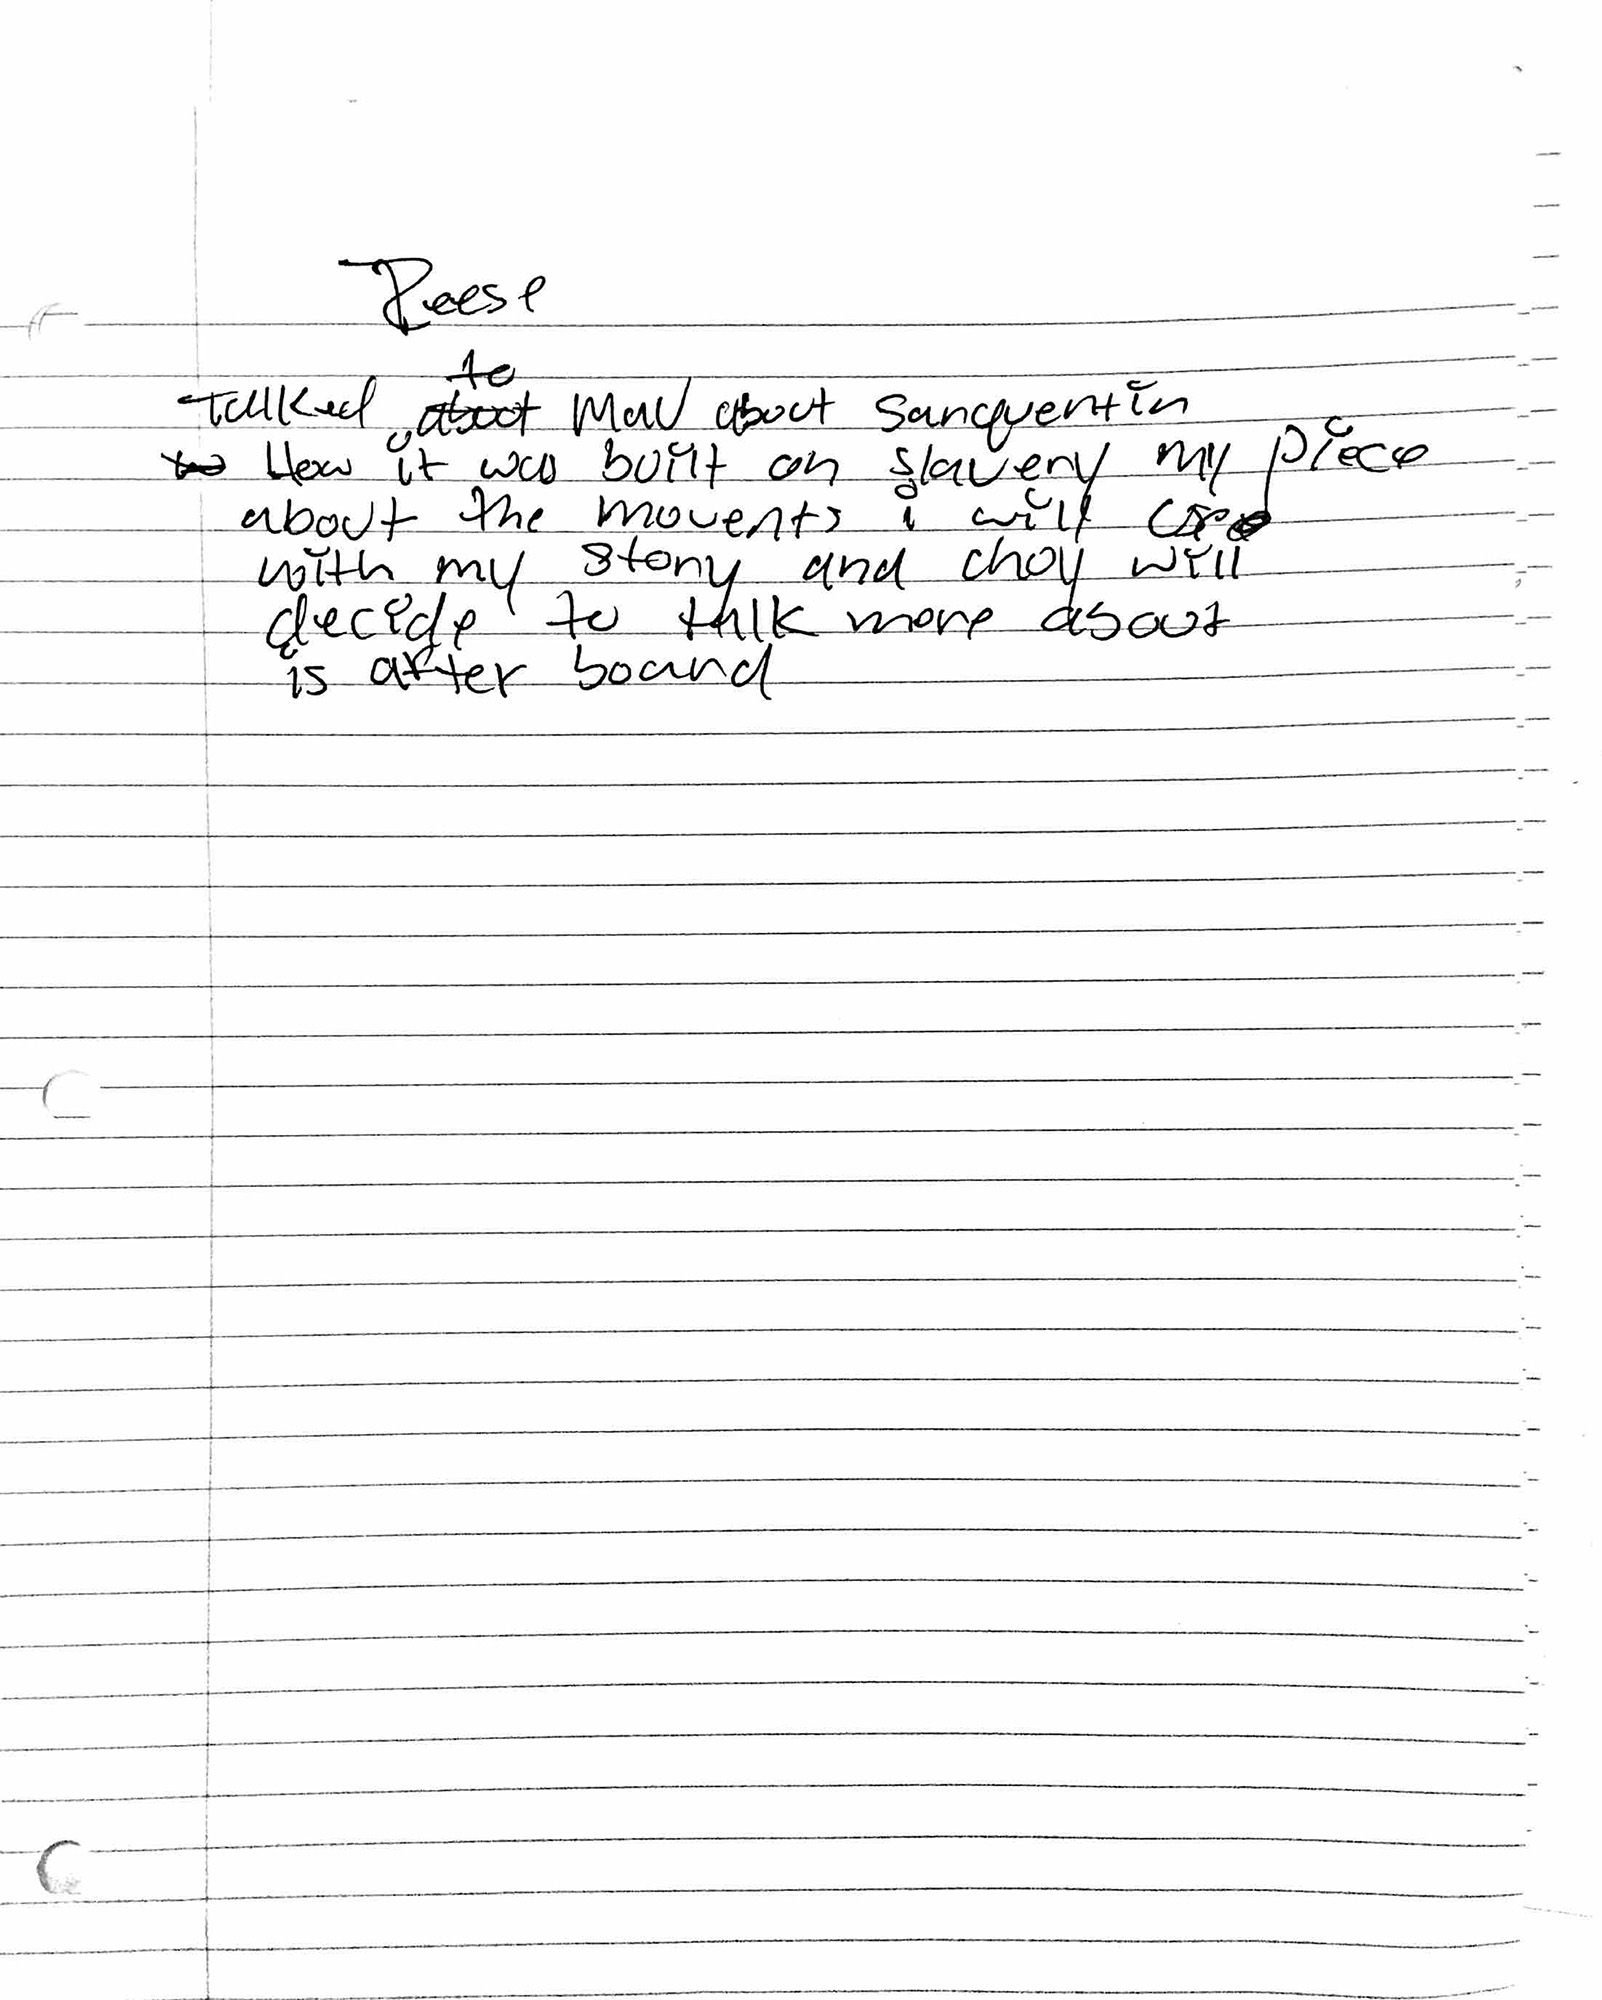 Reese
to
Talked about Mal about Sanquentin
to How it was built on slavery my piece
about the movents i will
with my story and choy will
decide to talk more about
is after board